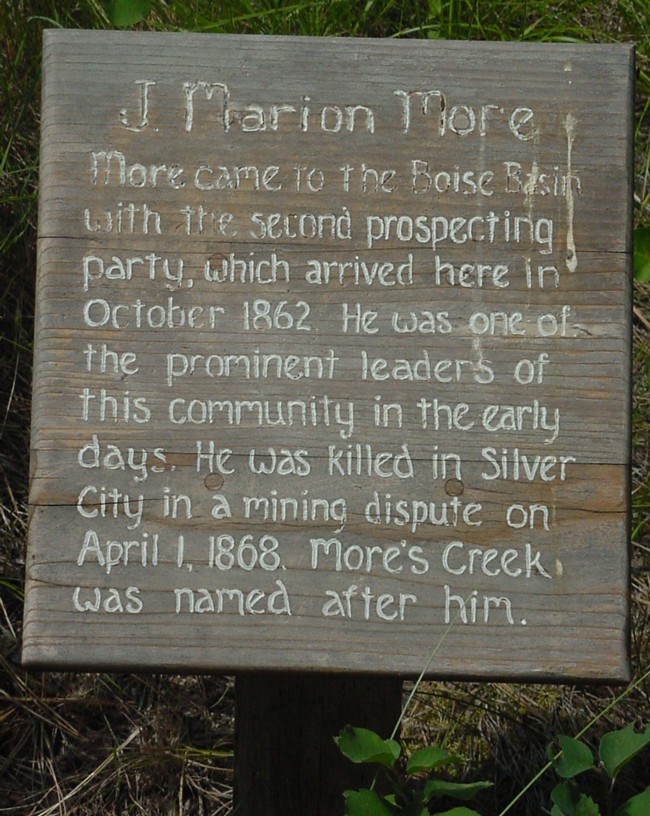 J. Marion More
More came to the Boise Basin
with the second prospecting
party, which arrived here in
October 1862. He was one of
the prominent leaders of
this community in the early
days. He was killed in Silver
City in a mining dispute on
April 1, 1868. More's Creek
was named after him.